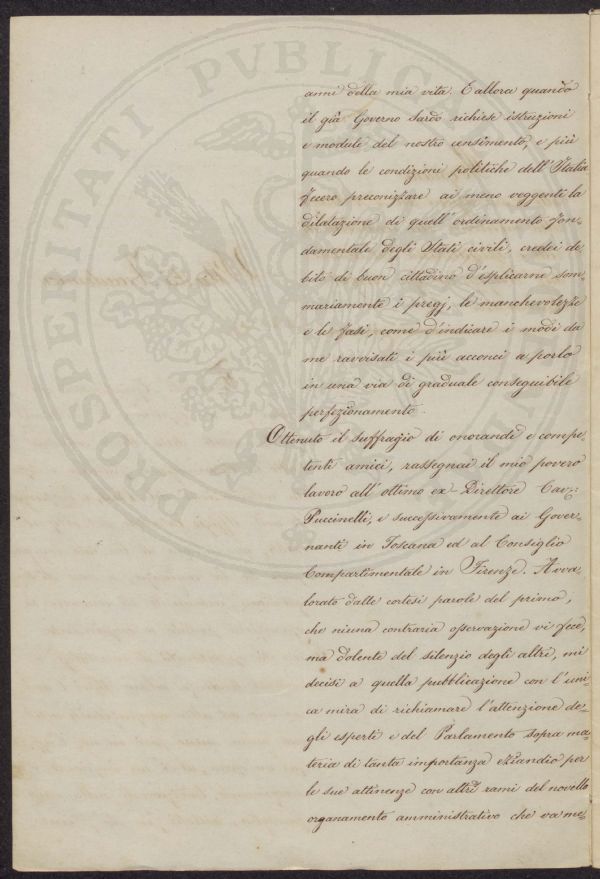 PROSPERITATI PVBLICAE
anni della mia vita. E allora quando
il già Governo Sardo richiese istruzioni
e module del nostro censimento, e più
quando le condizioni politiche dell'Italia
fecero preconizzare ai meno veggenti la
dilatazione di quell'ordinamento fon-
damentale degli Stati civili, credei de-
bito di buon cittadino d'esplicarne som-
mariamente i pregj, le manchevolezze
e le fasi, come d'indicare i modi da
me ravvisati i più acconci a porlo
in una via di graduale conseguibile
perfezionamento.
Ottenuto il suffragio di onorandi e compe-
tenti amici, rassegnai il mio povero
lavoro all'ottimo ex-Direttore Cav:
Puccinelli, e successivamente ai Gover-
nanti in Toscana ed al Consiglio
Compartimentale in Firenze. Avva-
lorato dalle cortesi parole del primo,
che niuna contraria osservazione vi fece,
ma dolente del silenzio degli altri, mi
decisi a quella pubblicazione con l'uni-
ca mira di richiamare l'attenzione de-
gli esperti e del Parlamento sopra ma-
teria di tanta importanza eziandio per
le sue attinenze con altri rami del novello
organamento amministrativo che va me-